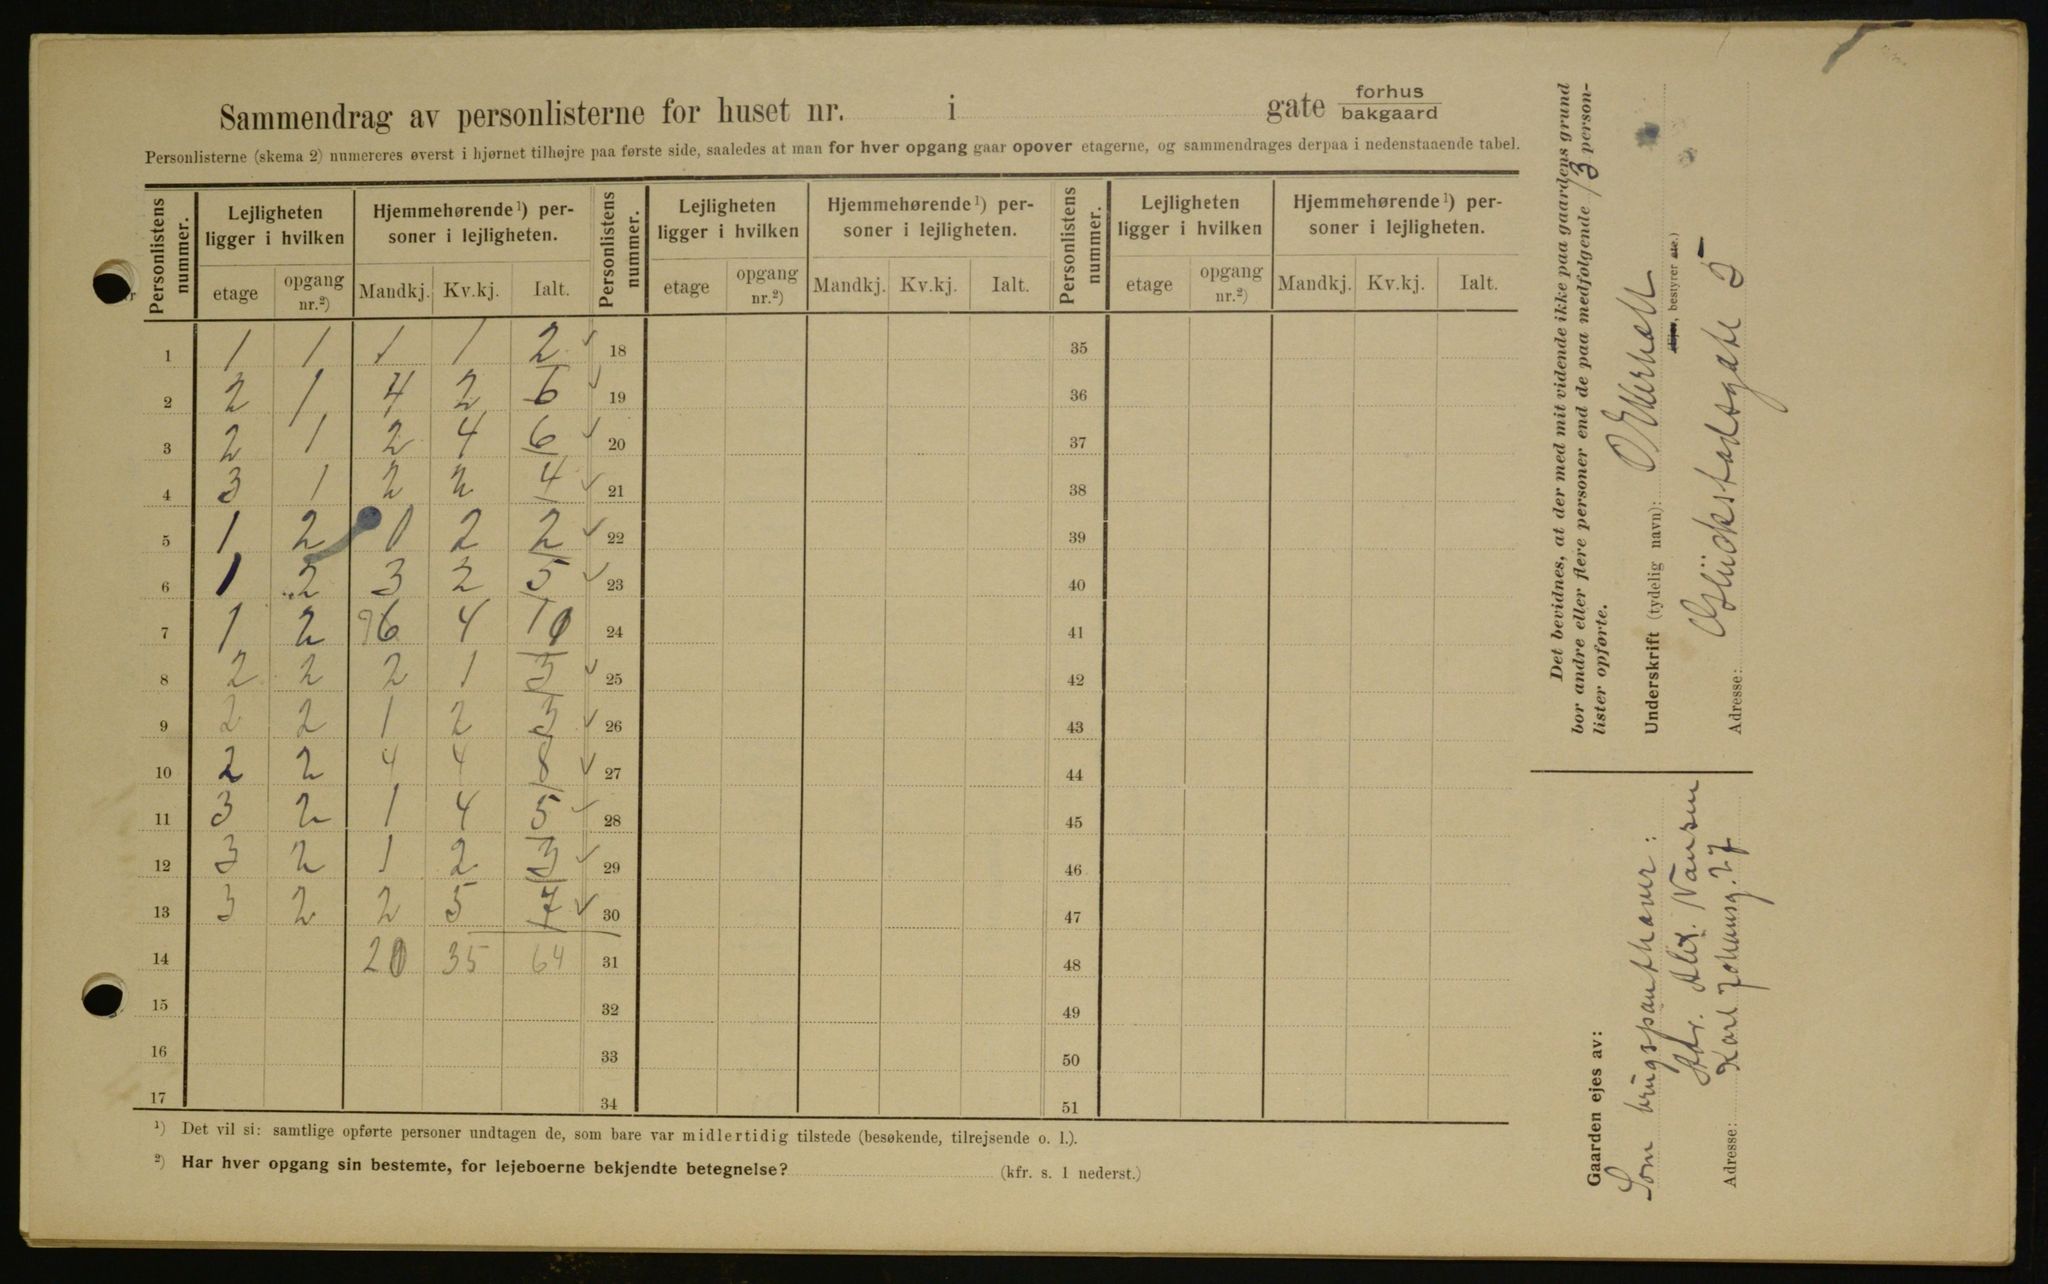 Sammendrag av personlisterne for huset nr. i gate forhus
bakgaard
Personlisterne (skema 2) numereres øverst i hjørnet tilhøjre paa første side, saaledes at man for hver opgang gaar opover etagerne, og sammendrages derpaa i nedenstaaende tabel.
Personlistens nummer. Lejligheten ligger i hvilken Hjemmehørende ¹) personer i lejligheten. Personlistens nummer. Lejligheten ligger i hvilken Hjemmehørende ¹) personer i lejligheten. Personlistens nummer. Lejligheten ligger i hvilken Hjemmehørende ¹) personer i lejligheten.
etage opgang nr.²) Mandkj. Kv.kj. Ialt. etage opgang nr.²) Mandkj. Kv.kj. Ialt. etage opgang nr.²) Mandkj. Kv.kj. Ialt.
1 1 1 1 1 2 ✓ 18 35
2 2 1 4 2 6 ✓ 19 36
3 2 1 2 4 6 ✓ 20 37
4 3 1 2 2 4 ✓ 21 38
5 1 2 0 2 2 ✓ 22 39
6 1 2 3 2 5 ✓ 23 40
7 1 2 6 4 10 24 41
8 2 2 2 1 3 ✓ 25 42
9 2 2 1 2 3 ✓ 26 43
10 2 2 4 4 8 ✓ 27 44
11 3 2 1 4 5 ✓ 28 45
12 3 2 1 2 3 ✓ 29 46
13 3 2 2 5 7 ✓ 30 47
14 35 64 31 48
15 32 49
16 33 50
17 34 51
¹) Det vil si: samtlige opførte personer undtagen de, som bare var midlertidig tilstede (besøkende, tilrejsende o. l.).
²) Har hver opgang sin bestemte, for lejeboerne bekjendte betegnelse? (kfr. s. 1 nederst.)
Det bevidnes, at der med mit vidende ikke paa gaardens grund
bor andre eller flere personer end de paa medfølgende 13 person-
lister opførte.
Underskrift (tydelig navn):
eljer, bestyrer etc.)
Adresse: Glückstadsgate 5
Gaarden ejes av:
Som brugspanthaver:
Adr. Alex. Nansen
Adresse: Karl Johansg. 27